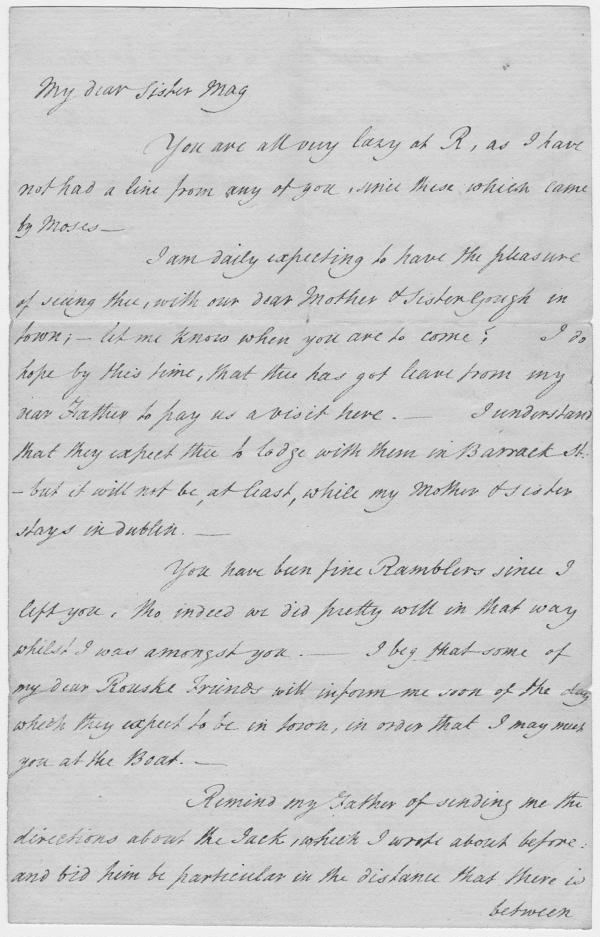 My dear Sister Mag
You are all very lazy at R, as I have
not had a line from any of you, since these which came
by Moses —
I am daily expecting to have the pleasure
of seeing thee, with our dear Mother & Sister Gough in
town; — let me know when you are to come? I do
hope by this time, that thee has got leave from my
dear Father to pay us a visit here. — I understand
that they expect thee to lodge with them in Barrack St.
— but it will not be, at least, while my Mother & Sister
stays in Dublin. —
You have been fine Ramblers since I
left you, tho indeed we did pretty well in that way
whilst I was amongst you. — I beg that some of
my dear Rouske Friends will inform me soon of the day
which they expect to be in town, in order that I may meet
you at the Boat. —
Remind my Father of sending me the
directions about the Jack, which I wrote about before:
and bid him be particular in the distance that there is
between